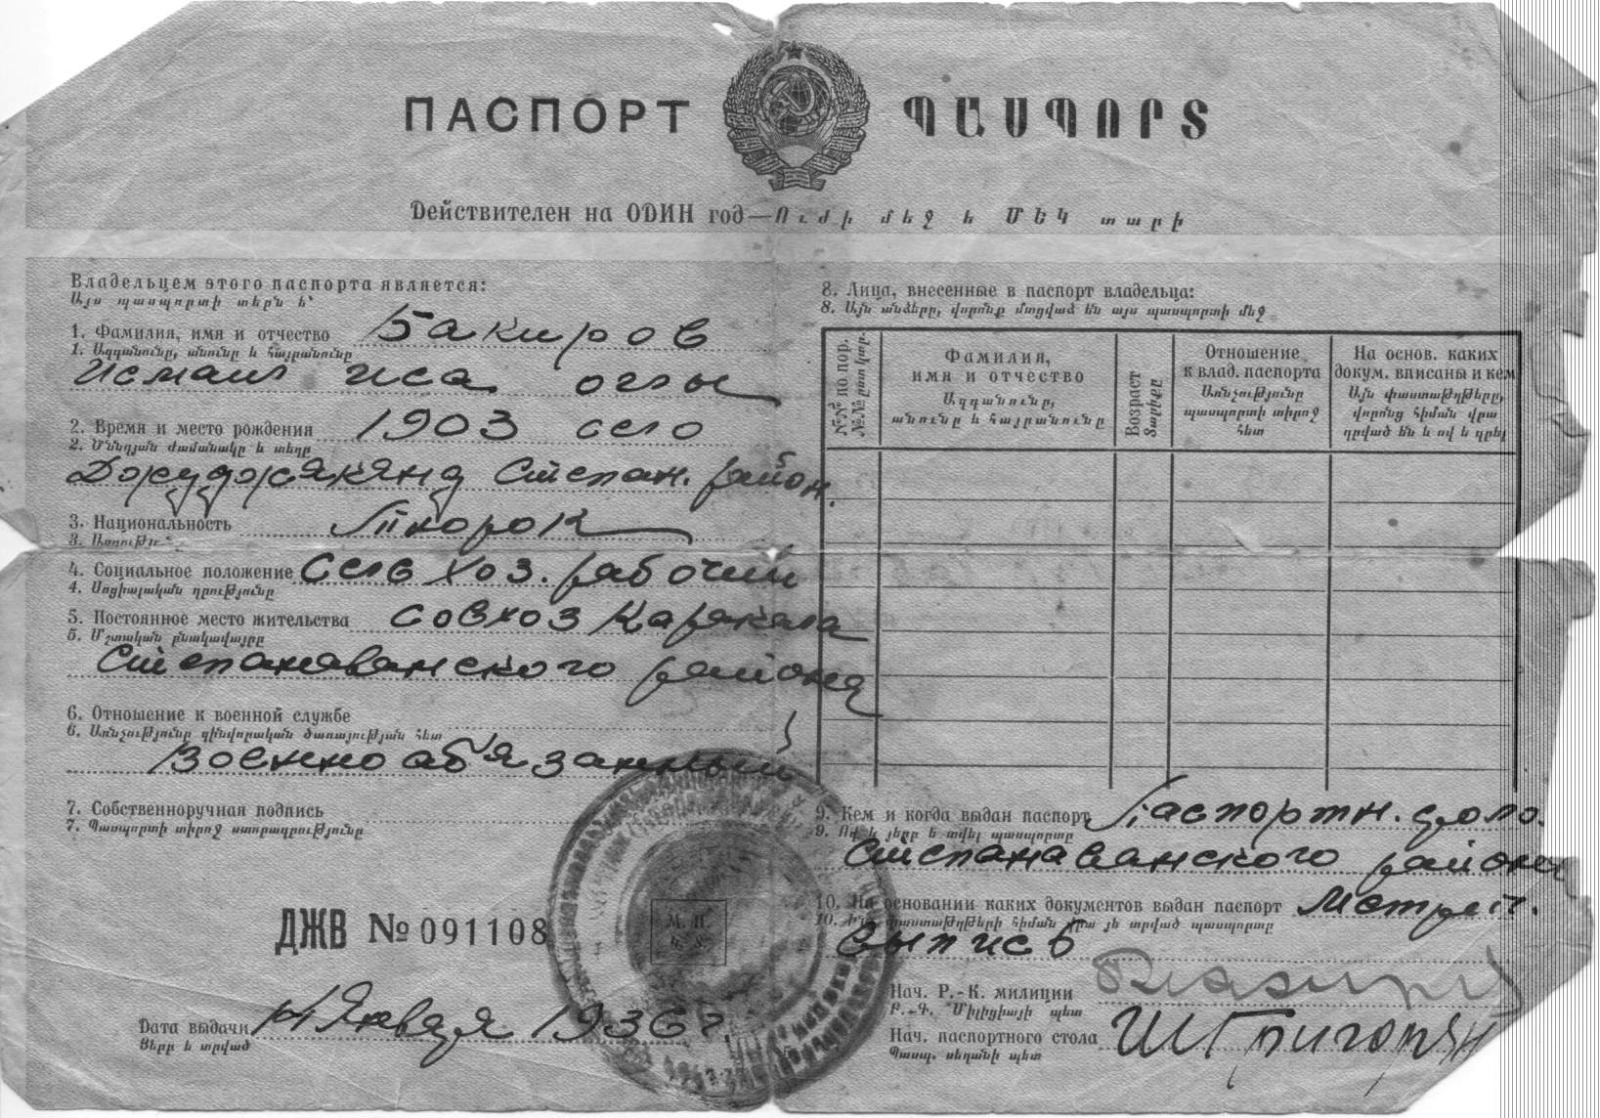 ПАСПОРТ ՊԱՍՊՈՐՏ
Действителен на ОДИН год—Ուժի մեջ է ՄԵԿ տարի
Владельцем этого паспорта является:
Այս պասպորտի տերն է՝
1. Фамилия, имя и отчество Бакиров
1. Ազգանունը, անունը և հայրանունը
Исмаил Иса оглы
2. Время и место рождения 1903 село
2. Ծննդյան ժամանակը և տեղը
Джуджакянд Степан. район.
3. Национальность Тюрок
3. Ազգութ
4. Социальное положение Сель хоз. рабочий
4. Սոցիալական դրությունը
5. Постоянное место жительства совхоз Каракала
5. Մշտական բնակավայրը
Степанаванского района
6. Отношение к военной службе
6. Առնչությունը զինվորական ծառայության հետ
Военно об'язанный
7. Собственноручная подпись
7. Պասպորտի տիրոջ ստորագրությունը
ДЖВ № 091108
М. П.
Կ. Տ.
Дата выдачи Января 1936 г.
Յերբ է տրված
8. Лица, внесенные в паспорт владельца:
8. Այն անձերը, վորոնք մտցված են այս պասպորտի մեջ
№№ по пор.
№№ ըստ կար.
Фамилия,
имя и отчество
Ազգանունը,
անունը և հայրանունը
Возраст
Տարիքը
Отношение
к влад. паспорта
Առնչությունը
պասպորտի տիրոջ
հետ
На основ. каких
докум. вписаны и кем
Այն փաստաթղթերը,
վորոնց հիման վրա
գրված են և ով է գրել
9. Кем и когда выдан паспорт Паспортн. столо.
9. Ով և յերբ է տվել պասպորտը
Степанаванского района
10. На основании каких документов выдан паспорт Метреч.
10. Ի՞նչ փաստաթղթերի հիման վրա յե տրված պասպորտը
выпись
Нач. Р.-К. милиции
Բ.-Գ. Միլիցիայի պետ
Нач. паспортного стола Ш Григорян
Պասպ. սեղանի պետ